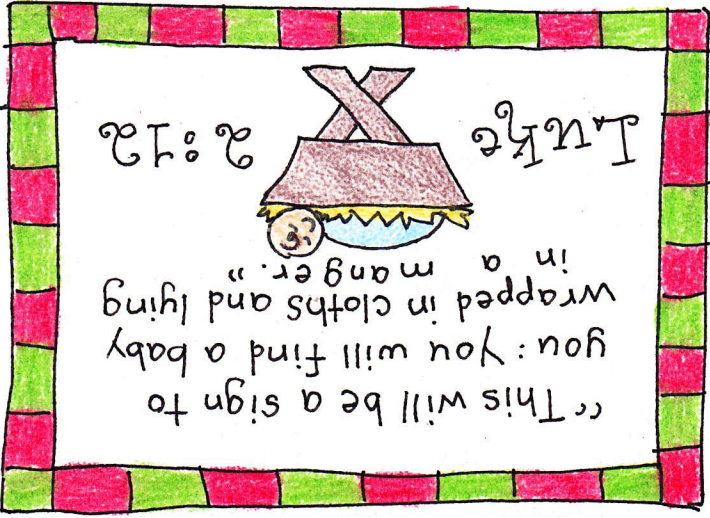 "This will be a sign to
you: You will find a baby
wrapped in cloths and lying
in a manger."
Luke 2:12